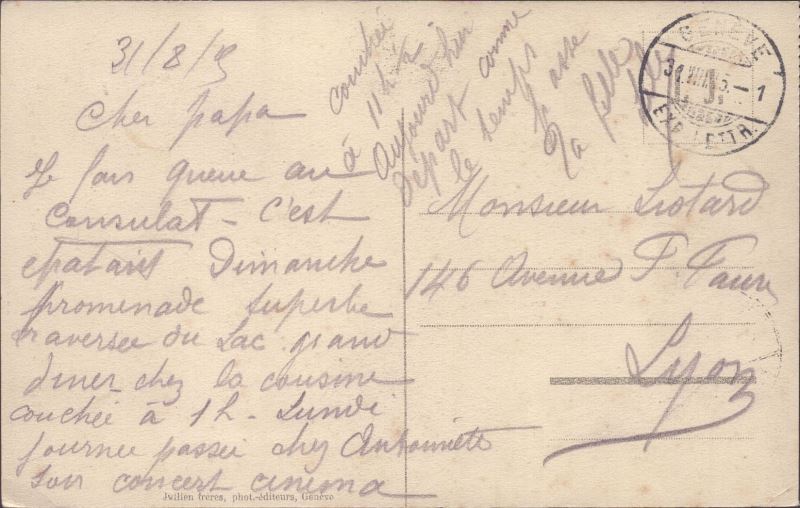 31/8/15
Cher papa
Je fais queue au
Consulat - C'est
epatant Dimanche
promenade superbe
traversee du Lac grand
diner chez la cousine
couchée à 1h - Lundi
journee passee chez Antoinette
soir concert cinema
couchée
à 11h ½
Aujourd'hui
départ comme
le temps
passe
Ta fille
Monsieur Liotard
146 Avenue F. Faure
Lyon
GENÈVE
31.VIII.15.-1
EXP. LETTR.
Jullien frères, phot.-éditeurs, Genève